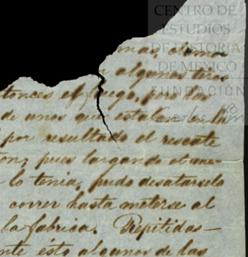 CENTRO DE
ESTUDIOS
DE HISTORIA
DE MÉXICO
FUNDACIÓN
algunos tiros
tonces el fuego, por los
de unos que estaban en la
por resultado el rescate
pues largando el
lo tenia, pudo desatarselo
correr hasta meterse al
la fabrica. Repitidas
nte esto algunos de las